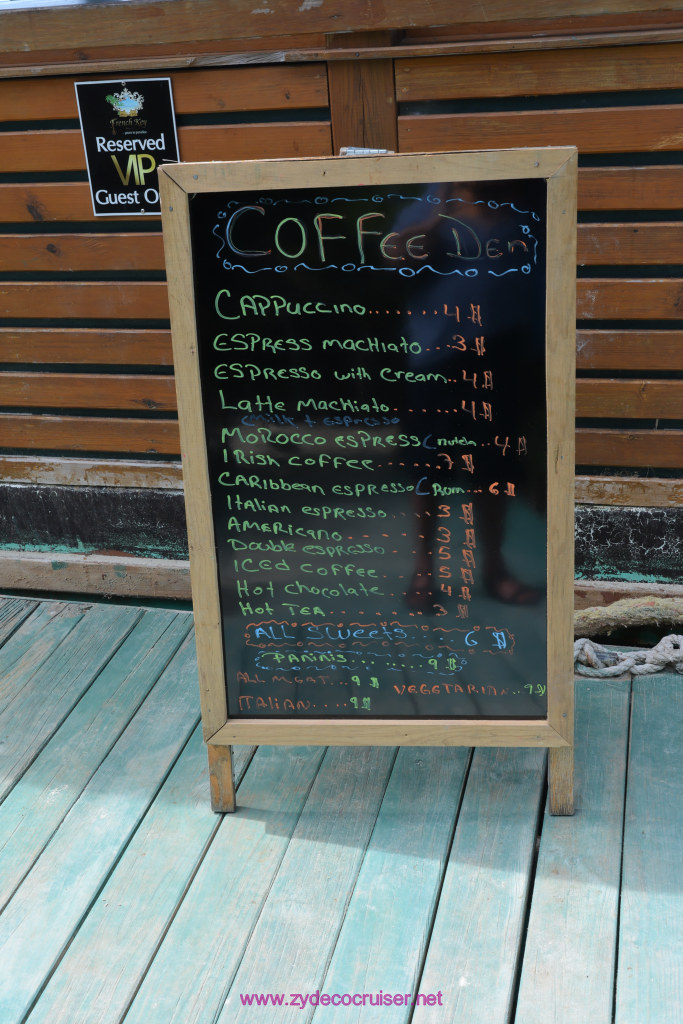 French Key
Reserved
VIP
Guest O
COFFEE Den
CAPPuccino.......4$
ESPRESS macHiato...3$
ESPRESSO with Cream..4$
Latte MacHiato.......4$
milk + espresso
MOROCCO esPRESS( nutela...4$
IRish coffee......7$
CARIbbean espresso( Rom...6$
Italian espresso.....3$
AMERICANO.....3$
Double espresso.....5$
ICED COFFEE.....5$
Hot chocolate.....4$
Hot TEA........3$
ALL Sweets.....6$
PANINIS........9$
ALL MEAT....9$
VEGGETARIAN...9$
ITALIAN.....9$
www.zydecocruiser.net